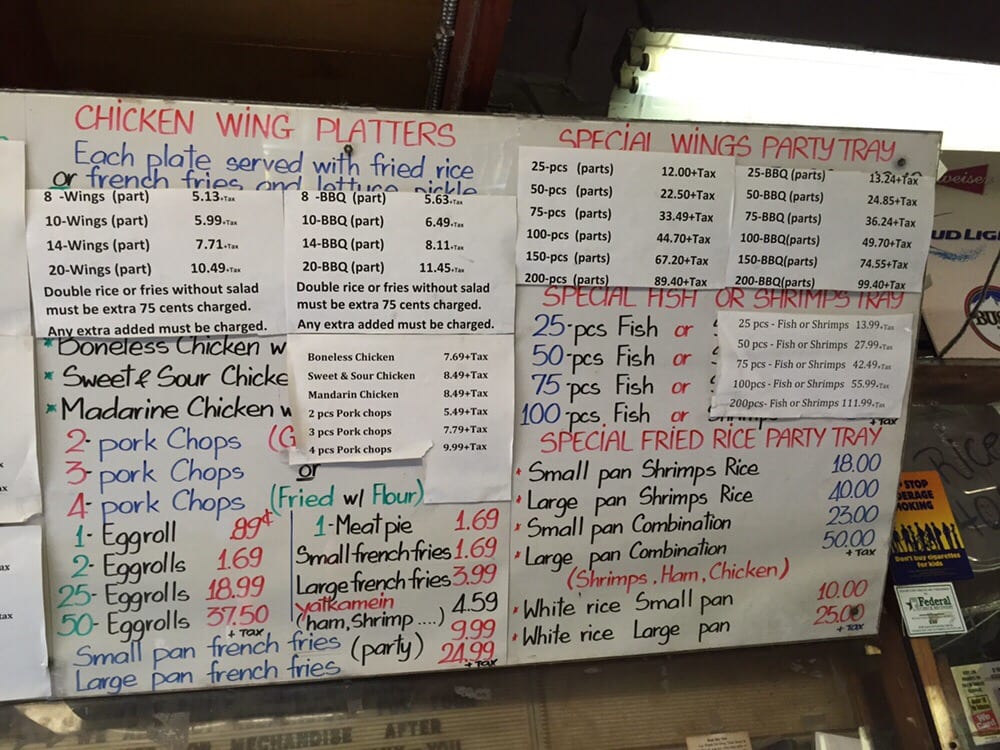 CHICKEN WING PLATTERS
Each plate served with fried rice
or french fries and lettuce pickle
8 -Wings (part) 5.13+Tax
10-Wings (part) 5.99+Tax
14-Wings (part) 7.71+Tax
20-Wings (part) 10.49+Tax
Double rice or fries without salad
must be extra 75 cents charged.
Any extra added must be charged.
8 -BBQ (part) 5.63+Tax
10-BBQ (part) 6.49+Tax
14-BBQ (part) 8.11+Tax
20-BBQ (part) 11.45+Tax
Double rice or fries without salad
must be extra 75 cents charged.
Any extra added must be charged.
* Boneless Chicken w
* Sweet & Sour Chicke
* Madarine Chicken w
Boneless Chicken 7.69+Tax
Sweet & Sour Chicken 8.49+Tax
Mandarin Chicken 8.49+Tax
2 pcs Pork chops 5.49+Tax
3 pcs Pork chops 7.79+Tax
4 pcs Pork chops 9.99+Tax
2- pork Chops (G
3- pork Chops or
4- pork Chops (Fried w/ Flour)
1- Eggroll .89¢
2- Eggrolls 1.69
25- Eggrolls 18.99
50- Eggrolls 37.50
+ TAX
1-Meat pie 1.69
Small french fries 1.69
Large french fries 3.99
yatkamein
(ham, Shrimp ....) 4.59
Small pan french fries (party) 9.99
Large pan french fries 24.99
+ TAX
SPECIAL WINGS PARTY TRAY
25-pcs (parts) 12.00+Tax
50-pcs (parts) 22.50+Tax
75-pcs (parts) 33.49+Tax
100-pcs (parts) 44.70+Tax
150-pcs (parts) 67.20+Tax
200-pcs (parts) 89.40+Tax
25-BBQ (parts) 13.24+Tax
50-BBQ (parts) 24.85+Tax
75-BBQ (parts) 36.24+Tax
100-BBQ(parts) 49.70+Tax
150-BBQ(parts) 74.55+Tax
200-BBQ(parts) 99.40+Tax
SPECIAL FISH OR SHRIMPS TRAY
25-pcs Fish or
50-pcs Fish or
75-pcs Fish or
100-pcs Fish or Shrimps
+ TAX
25 pcs - Fish or Shrimps 13.99+Tax
50 pcs - Fish or Shrimps 27.99+Tax
75 pcs - Fish or Shrimps 42.49+Tax
100pcs - Fish or Shrimps 55.99+Tax
200pcs- Fish or Shrimps 111.99+Tax
SPECIAL FRIED RICE PARTY TRAY
* Small pan Shrimps Rice 18.00
* Large pan Shrimps Rice 40.00
* Small pan Combination 23.00
* Large pan Combination 50.00
+ TAX
(Shrimps, Ham, Chicken)
* White rice Small pan 10.00
* White rice Large pan 25.00
+ TAX
weiser
UD LIG
BUS
STOP
Don't buy cigarettes
for kids
Federal
RICE
We Card
MERCHANDISE AFTER
YOU